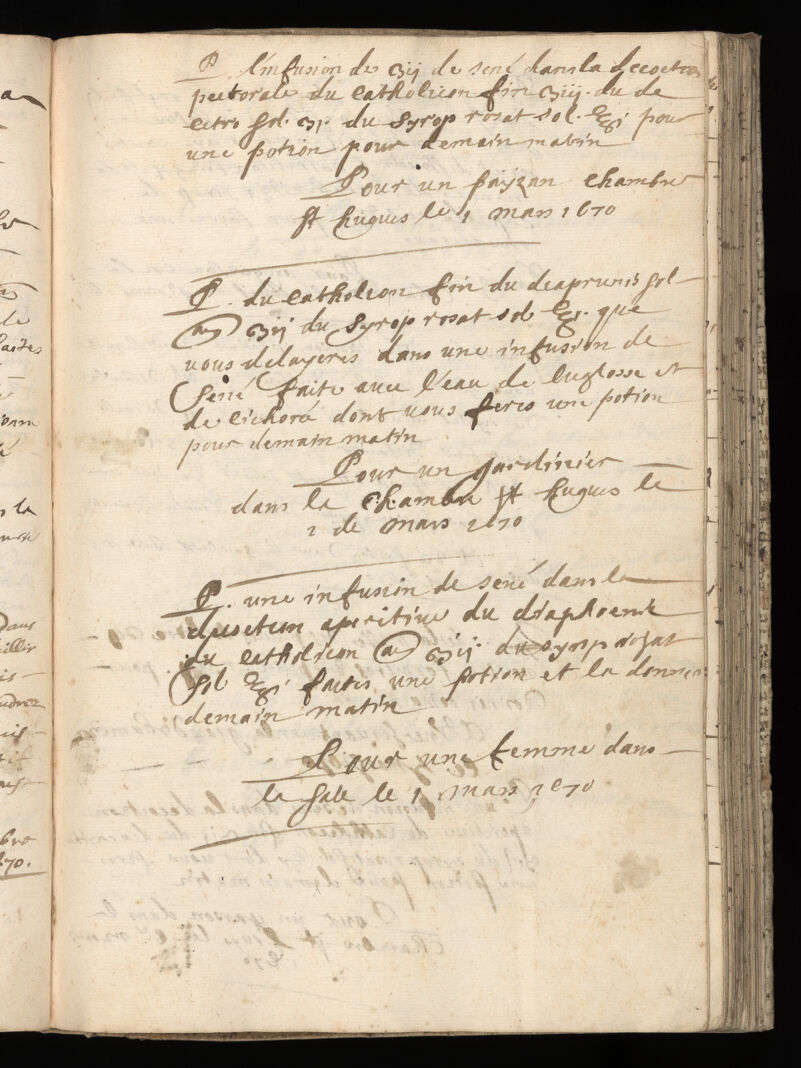 ℞ l'infusion de ʒij de sené dans la decoction
pectorale du catholicon fin ʒiij. du de
citro sol. ʒi. du syrop rosat sol. ℥i pour
une potion pour demain matin
Pour un païzan chambre
st hugues le 1 mars 1670
℞. du catholicon fin du diaprunis sol
aā ʒij du syrop rosat sol ℥i. que
vous delayeres dans une infusion de
sené faite avec l'eau de buglosse et
de cichoré dont vous feres une potion
pour demain matin
Pour un jardinier
dans la chambre st hugues le
1 de mars 1670
℞. une infusion de sené dans la
decoction aperitive du diaphoenic
du catholicon aā ʒij. du syrop rosat
sol ℥i faites une potion et la donner
demain matin
Pour une femme dans
la sale le 1 mars 1670